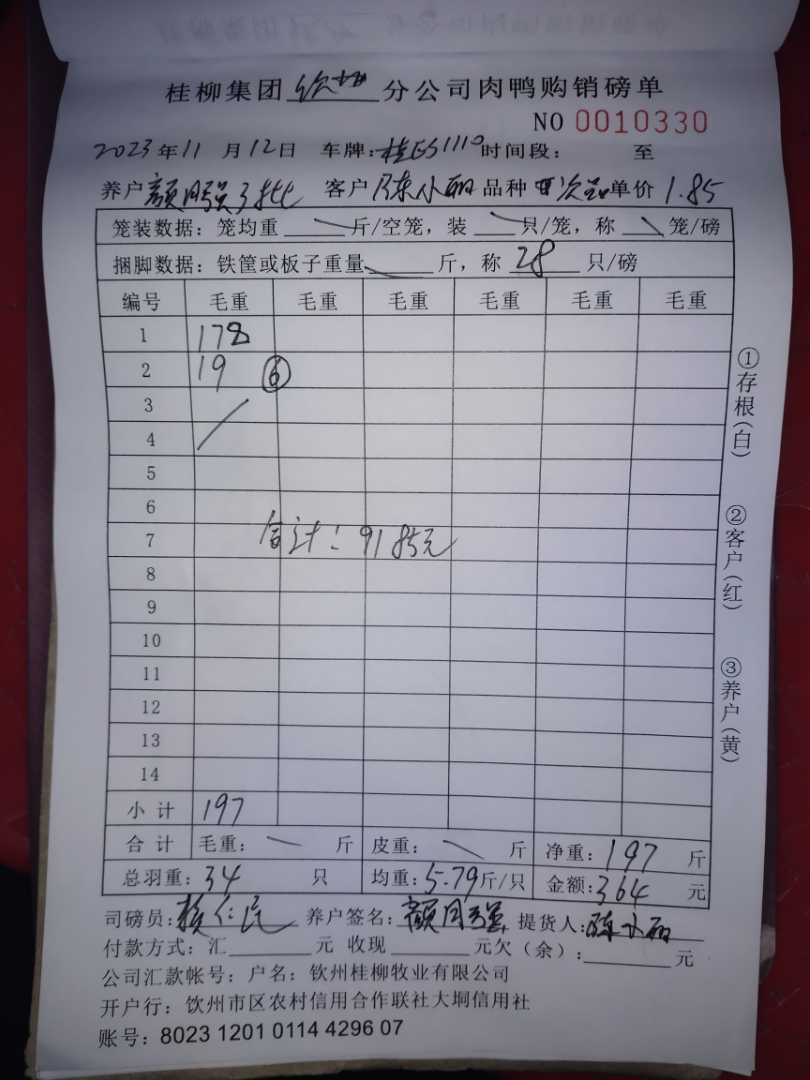 桂柳集团 钦州 分公司肉鸭购销磅单
NO 0010330
2023年11月12日 车牌: 时间段: 至
养户 客户 陈小丽 品种 次 单价 1.85
笼装数据: 笼均重 斤/空笼, 装 只/笼, 称 笼/磅
捆脚数据: 铁筐或板子重量 斤, 称 28 只/磅
编号 毛重 毛重 毛重 毛重 毛重 毛重
1 178
2 19 ⑥
3
4
5
6
7 合计: 9185元
8
9
10
11
12
13
14
小计 197
合计 毛重: 斤 皮重: 斤 净重: 197 斤
总羽重: 34 只 均重: 5.79斤/只 金额: 364 元
司磅员: 养户签名: 提货人: 陈小丽
付款方式: 汇 元 收现 元欠(余): 元
公司汇款帐号: 户名: 钦州桂柳牧业有限公司
开户行: 钦州市区农村信用合作联社大垌信用社
账号: 8023 1201 0114 4296 07
①存根(白)
②客户(红)
③养户(黄)